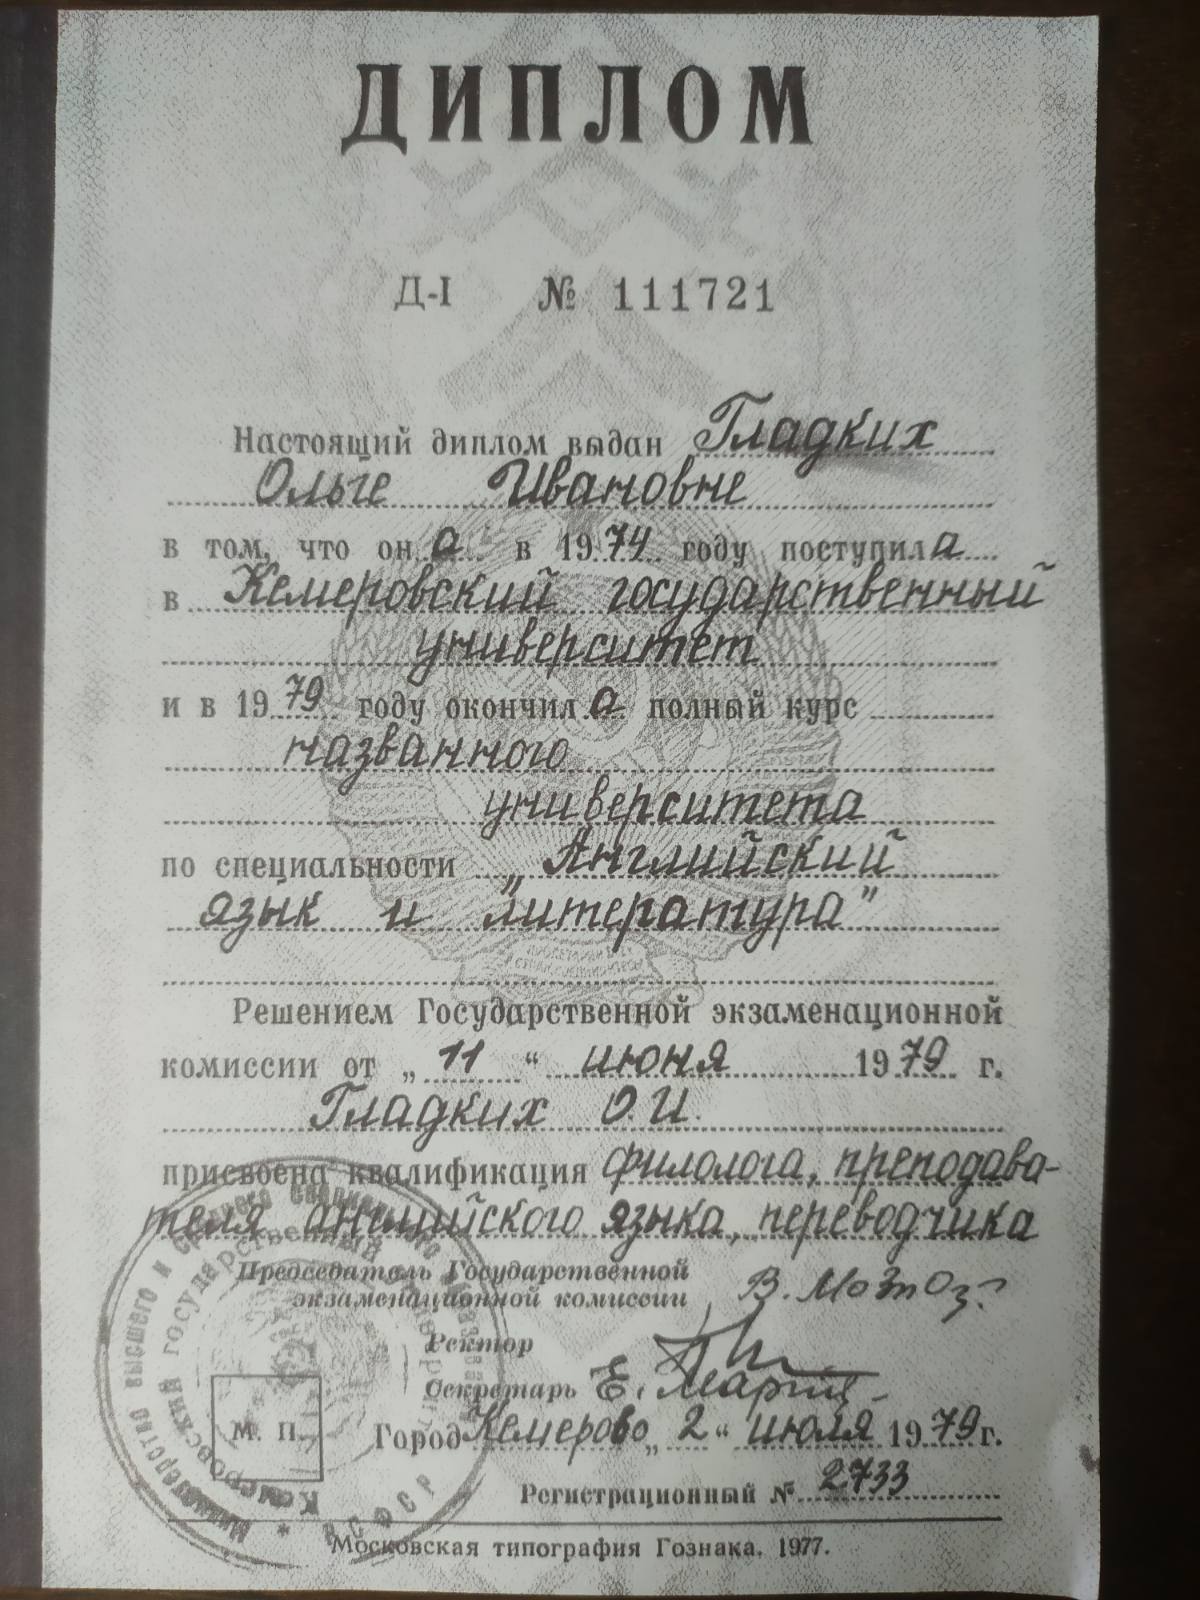 ДИПЛОМ
Д-I № 111721
Настоящий диплом выдан Гладких
Ольге Ивановне
в том, что он а в 1974 году поступил а
в Кемеровский государственный
университет
и в 1979 году окончил а полный курс
названного
университета
по специальности „Английский
язык и литература"
Решением Государственной экзаменационной
комиссии от „11" июня 1979 г.
Гладких О.И.
присвоена квалификация филолога, преподава-
теля английского языка, переводчика
Председатель Государственной
экзаменационной комиссии В.
Ректор
Секретарь Е.
М. П.
Город Кемерово „2" июля 1979 г.
Регистрационный № 2733
Московская типография Гознака. 1977.
Министерство высшего и среднего специального
РСФСР
Кемеровский государственный университет